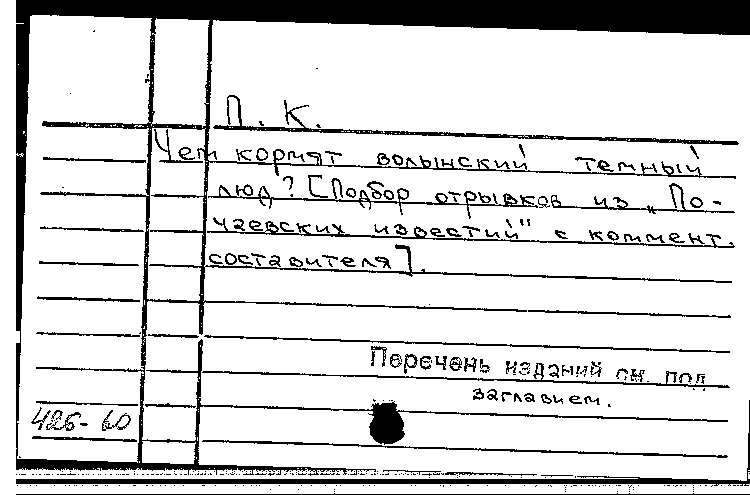 П. К.
Чем кормят волынский темный
люд? [Подбор отрывков из „По-
чаевских известий" с коммент.
составителя].
Перечень изданий см. под
заглавием.
426-60